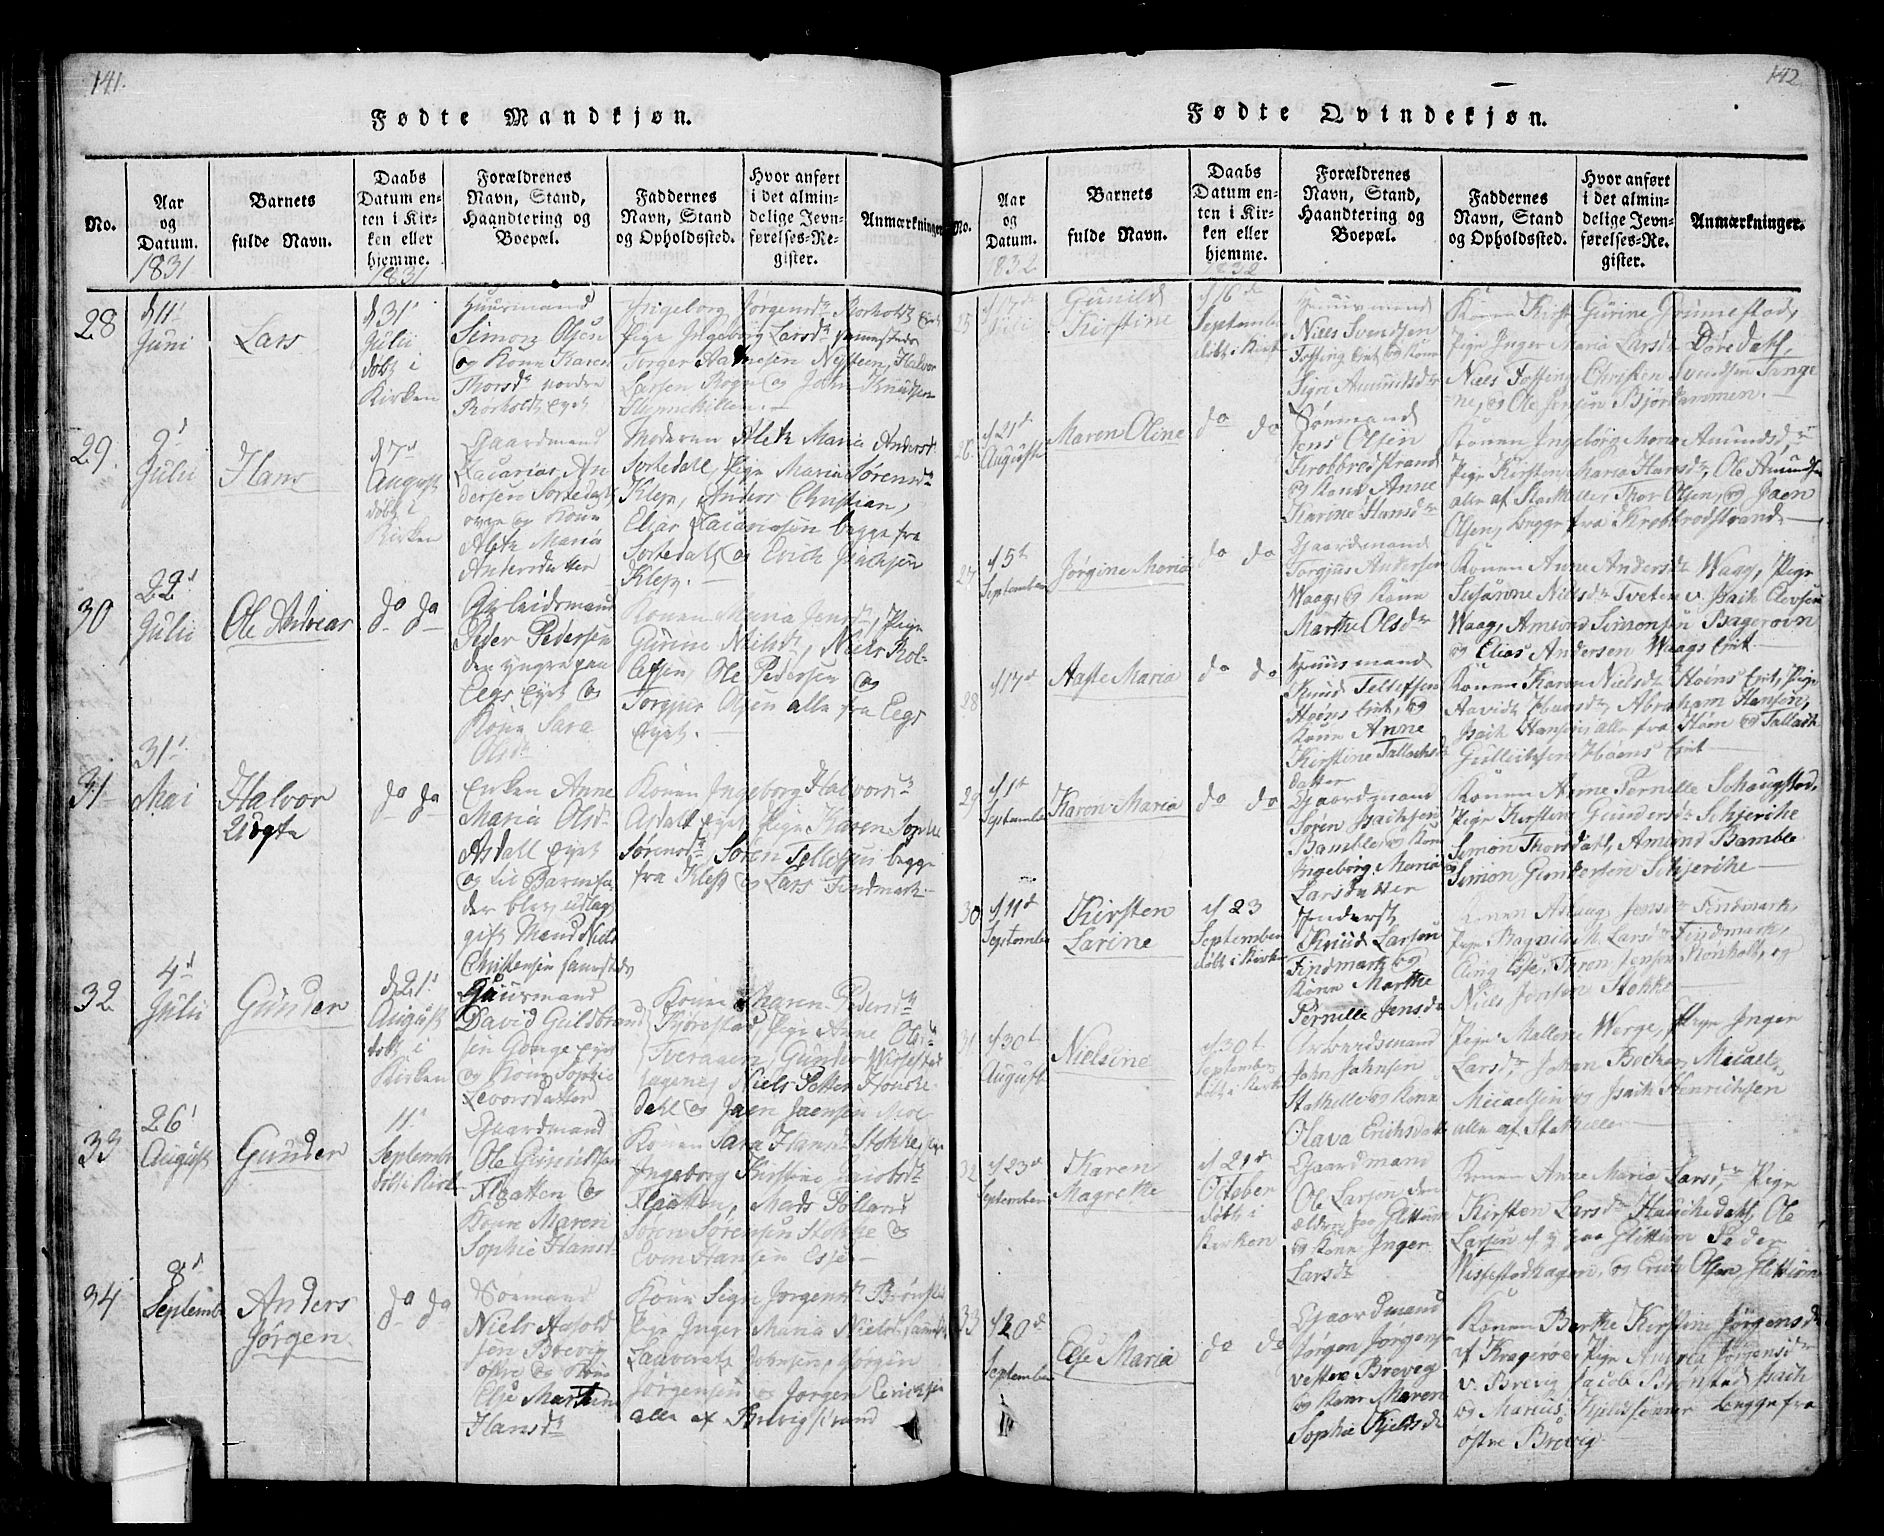 141.
Fødte Mandkjøn.
No.
Aar og Datum.
1831
Barnets fulde Navn.
Daabs Datum enten i Kirken eller hjemme.
1831
Forældrenes Navn, Stand, Haandtering og Boepæl.
Faddernes Navn, Stand og Opholdssted.
Hvor anført i det almindelige Jevnførelses-Register.
Anmærkninger
28
d 11t
Juni
Lars
d 31t
Julii
døbt i
Kirken
Huusmand
Simon Olsen
og Kone Karen
Thorsdr nordre
Rorholt eyet
Ingeborg Jørgensdr Rorholt
Pige Ingeborg Larsdr
Torger Nysteen, Halvor
Larsen Rogn og John Knudsen
29.
2d
Julii
Hans
d 7d
August
døbt i
Kirken
Gaardmand
Zacarias An
dersen Sortedal
og Kone
Aleth Maria
Andersdatter
Moderen Aleth Maria Andersdr
Sortedall, Pige Maria Sørensdr
Klep, Anders Christian,
Elias Zacariasen begge fra
Sortedall og Erich Isachsen
Klep. —
30
22d
Julii
Ole Andreas
do do
Arbeidsmand
Peder Pedersen
den yngre paa
Eegs eyet og
Kone Sara
Olsdr
Konen Maria Jensdr, Pige
Gurine Nielsdr, Niels Rol-
Ole Pedersen og
Torgjus Olsen alle fra Eegs
eyet. —
31
31t
Mai
Halvor
Uægte
do do
Enken Anne
Maria Olsdr
Asdall eyet
og til Barnefa
der blev udlag
gift Mand Niels
Christensen sammesteds
Konen Ingeborg Halvorsdr
Asdall eyet Pige Karen Sophie
Sørensdr Søren Tellefsen begge
fra Klep og Lars Findmark.
32
4d
Julii
Gunder
d 21t
August
døbt i
Kirken
Huusmand
David Guldbrand
sen Gonge eyet
og Kone Sophie
Levorsdatter
Konen Karen Pedersdr
Kjørestad Pige Anne Olsdr
Tveraaen, Gunder Wissestad
hagene, Niels Petter
dahl og Jaen Jaensen Moe
33
26t
August
Gunder
11t
September
døbt i Kirk
Gaardmand
Ole Gundersen
Flaatten og
Kone Maren
Sophie Hansdr
Konen Sara Hansdr Stokke, Pige
Ingeborg Kirstine Jacobsdr
Flaatten, Mads
Søren Sørensen Stokke og
Even Hansen Esse —
34
8d
Septembr
Anders
Jørgen
do do
Sømand
Niels Aasold
sen Brevig
østre og Kone
Else Marthine
Hansdr
Kone Sigri Jørgensdr
Pige Inger Maria Nielsdr
Johnsen, Jørgen
Jørgensen og Jørgen Erichsen
alle af Brevigstrand
142
Fødte Qvindekjøn.
No.
Aar og Datum.
1832
Barnets fulde Navn.
Daabs Datum enten i Kirken eller hjemme.
1832
Forældrenes Navn, Stand, Haandtering og Boepæl.
Faddernes Navn, Stand og Opholdssted.
Hvor anført i det almindelige Jevnførelses-Register.
Anmærkninger.
25
d 17de
Julii
Gunild
Kirstine
d 16de
September
døbt i Kirk
Huusmand
Niels Svendsen
Fossing Eiet og Kone
Sigri Amundsdr
Konen Kirst Gurine Grummestad,
Pige Inger Maria Larsdr Døredahl,
Niels Fossing, Christen Svendsen Tange
ne, og Ole Jensen Bjørkammen. —
26
d 21d
August
Maren Oline
do do
Sømand
Jens Olsen
Krobbrodstrand
og Kone Anne
Karine Hansdr
Konen Ingeborg Maria Amundsdr
Pige Kirsten Maria Hansdr, Ole Amundsen
alle af Stathelle, Thor Olsen, og Jaen
Olsen, begge fra Krobbrodstrand. —
27
d 5t
September
Jørgine Maria
do do
Gaardmand
Torgjus Andersen
Waag, og Kone
Marthe Olsdr
Konen Anne Andersdr Waag, Pige
Susanne Nielsdr Tveten v. Isach Olevsen
Waag, Amund Simonsen
og Elias Andersen Waags Eiet
28
d 17d
Aaste Maria
do do
Huusmand
Knud Tellefsen
Høens Eiet, og
Kone Anne
Kirstine Tallachs
datter
Konen Karen Nielsdr Høens Eiet, Pige
Abraham Hansen,
Isach Hansen, alle fra Høen og Tallach
Gulleichsen Høens Eiet
29
d 1t
September
Karen Maria
do do
Gaardmand
Søren Isachsen
Bamble og Kone
Ingeborg Maria
Larsdatter
Konen Anne Pernille Schougstad,
Pige Kirstine Gundersdr Schjerche
Simon Thorsdahl, Amund Bamble
og Simon Gundersen Schjerche
30
d 11d
September
Kirsten
Larine
d 23
September
døbt i Kirken
Inderst
Knud Larsen
Findmark og
Kone Marthe
Pernille Jensdr
Konen Aslaug Jensdr Findmark,
Pige Ragnild Larsdr Findmark,
Elling Esse, Thron Jensen Rorholt, og
Niels Jensen Stokke
31
d 30t
August
Nielsine
d 30t
September
døbt i Kirk
Arbeidsmand
John Johnsen
Stathelle og Kone
Olava Erichsdatter
Pige Mallene Werge, Pige Inger
Larsdr, Johan Becker, Micael
Micaelsen og Isach Henrichsen
alle af Stathelle
32
d 23d
September
Karen
Magrethe
d 21de
October
døbt i
Kirken
Gaardmand
Ole Larsen den
ældre paa Glittum
og Kone Inger
Larsdr
Konen Anne Maria Larsdr, Pige
Kirsten Larsdr Hauchedahl, Ole
Larsen d y paa Glittum Peder
Wissestadhagen, og Erich Olsen Glittum
33
d 20de
September
Else Maria
do do
Gaardmand
Jørgen Jørgensen
vestre Brevig
og Kone Maren
Sophie Kjelsdr
Konen Berthe Kirstine Jørgensdr
af Kragerøe, Pige Andrea Jørgensdr
v. Brevig, Jacob Isach
og Marius Kjelssønner begge fra
østre Brevig